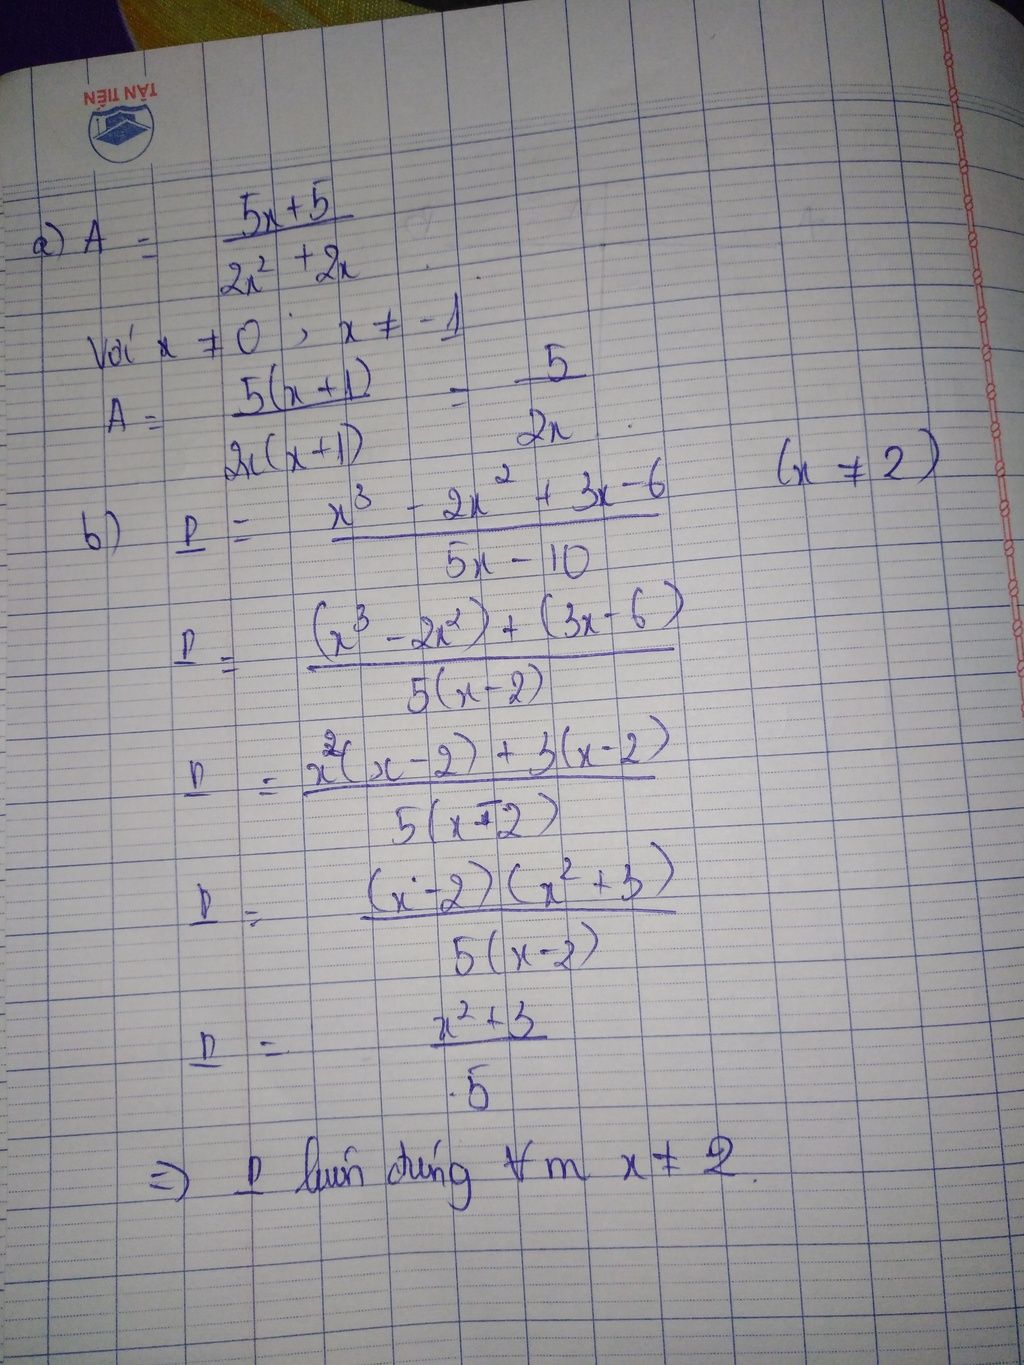 TÂN TIẾN
a) A = (5x+5)/(2x² + 2x)
Với x ≠ 0 ; x ≠ -1
A = 5(x+1)/2x(x+1) = 5/2x
b) P = (x³ - 2x² + 3x - 6)/(5x - 10) (x ≠ 2)
P = ((x³ - 2x²) + (3x - 6))/5(x - 2)
P = (x²(x - 2) + 3(x - 2))/5(x - 2)
P = (x - 2)(x² + 3)/5(x - 2)
P = (x² + 3)/5
=> P luôn đúng ∀ m x ≠ 2